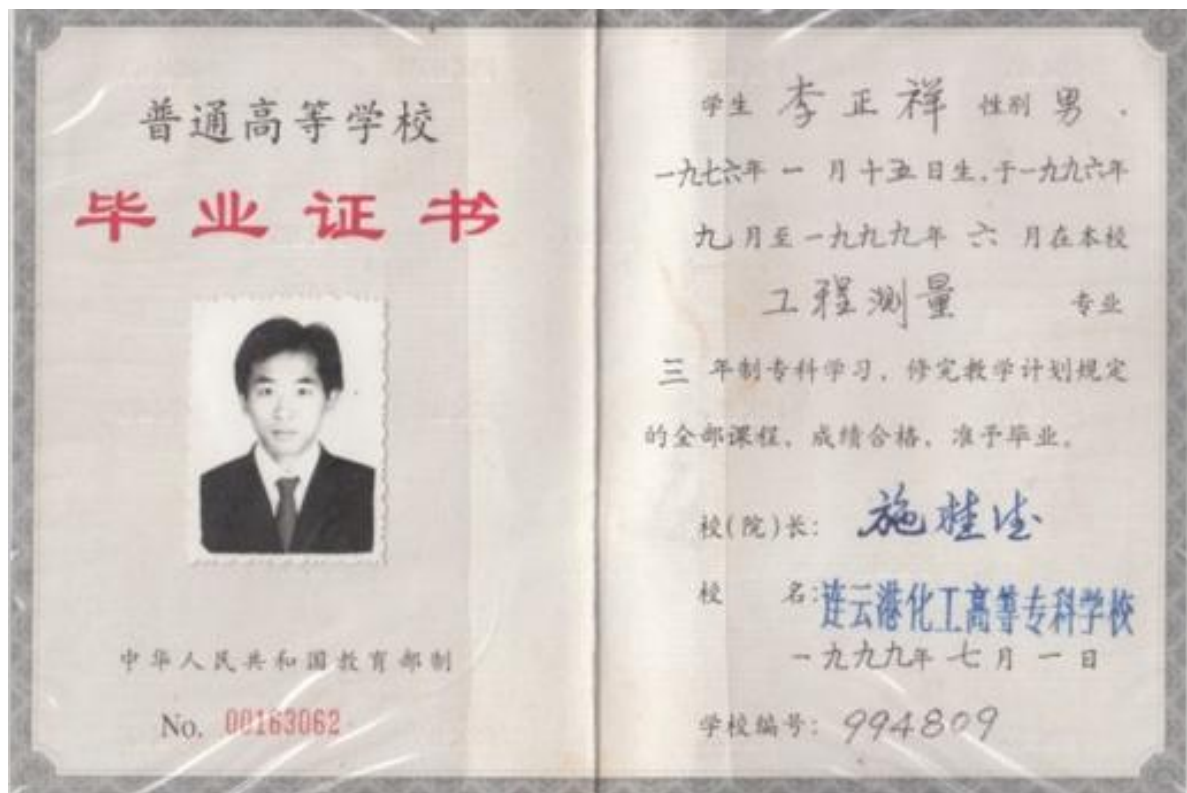 普通高等学校
毕业证书
中华人民共和国教育部制
No. 00163062
学生 李正祥 性别 男 .
一九七六年 一 月 十五 日生,于一九九六年
九 月至一九九九年 六 月在本校
工程测量 专业
三 年制专科学习,修完教学计划规定
的全部课程,成绩合格,准予毕业。
校(院)长: 施桂
校 名: 连云港化工高等专科学校
一九九九年 七 月 一 日
学校编号: 994809